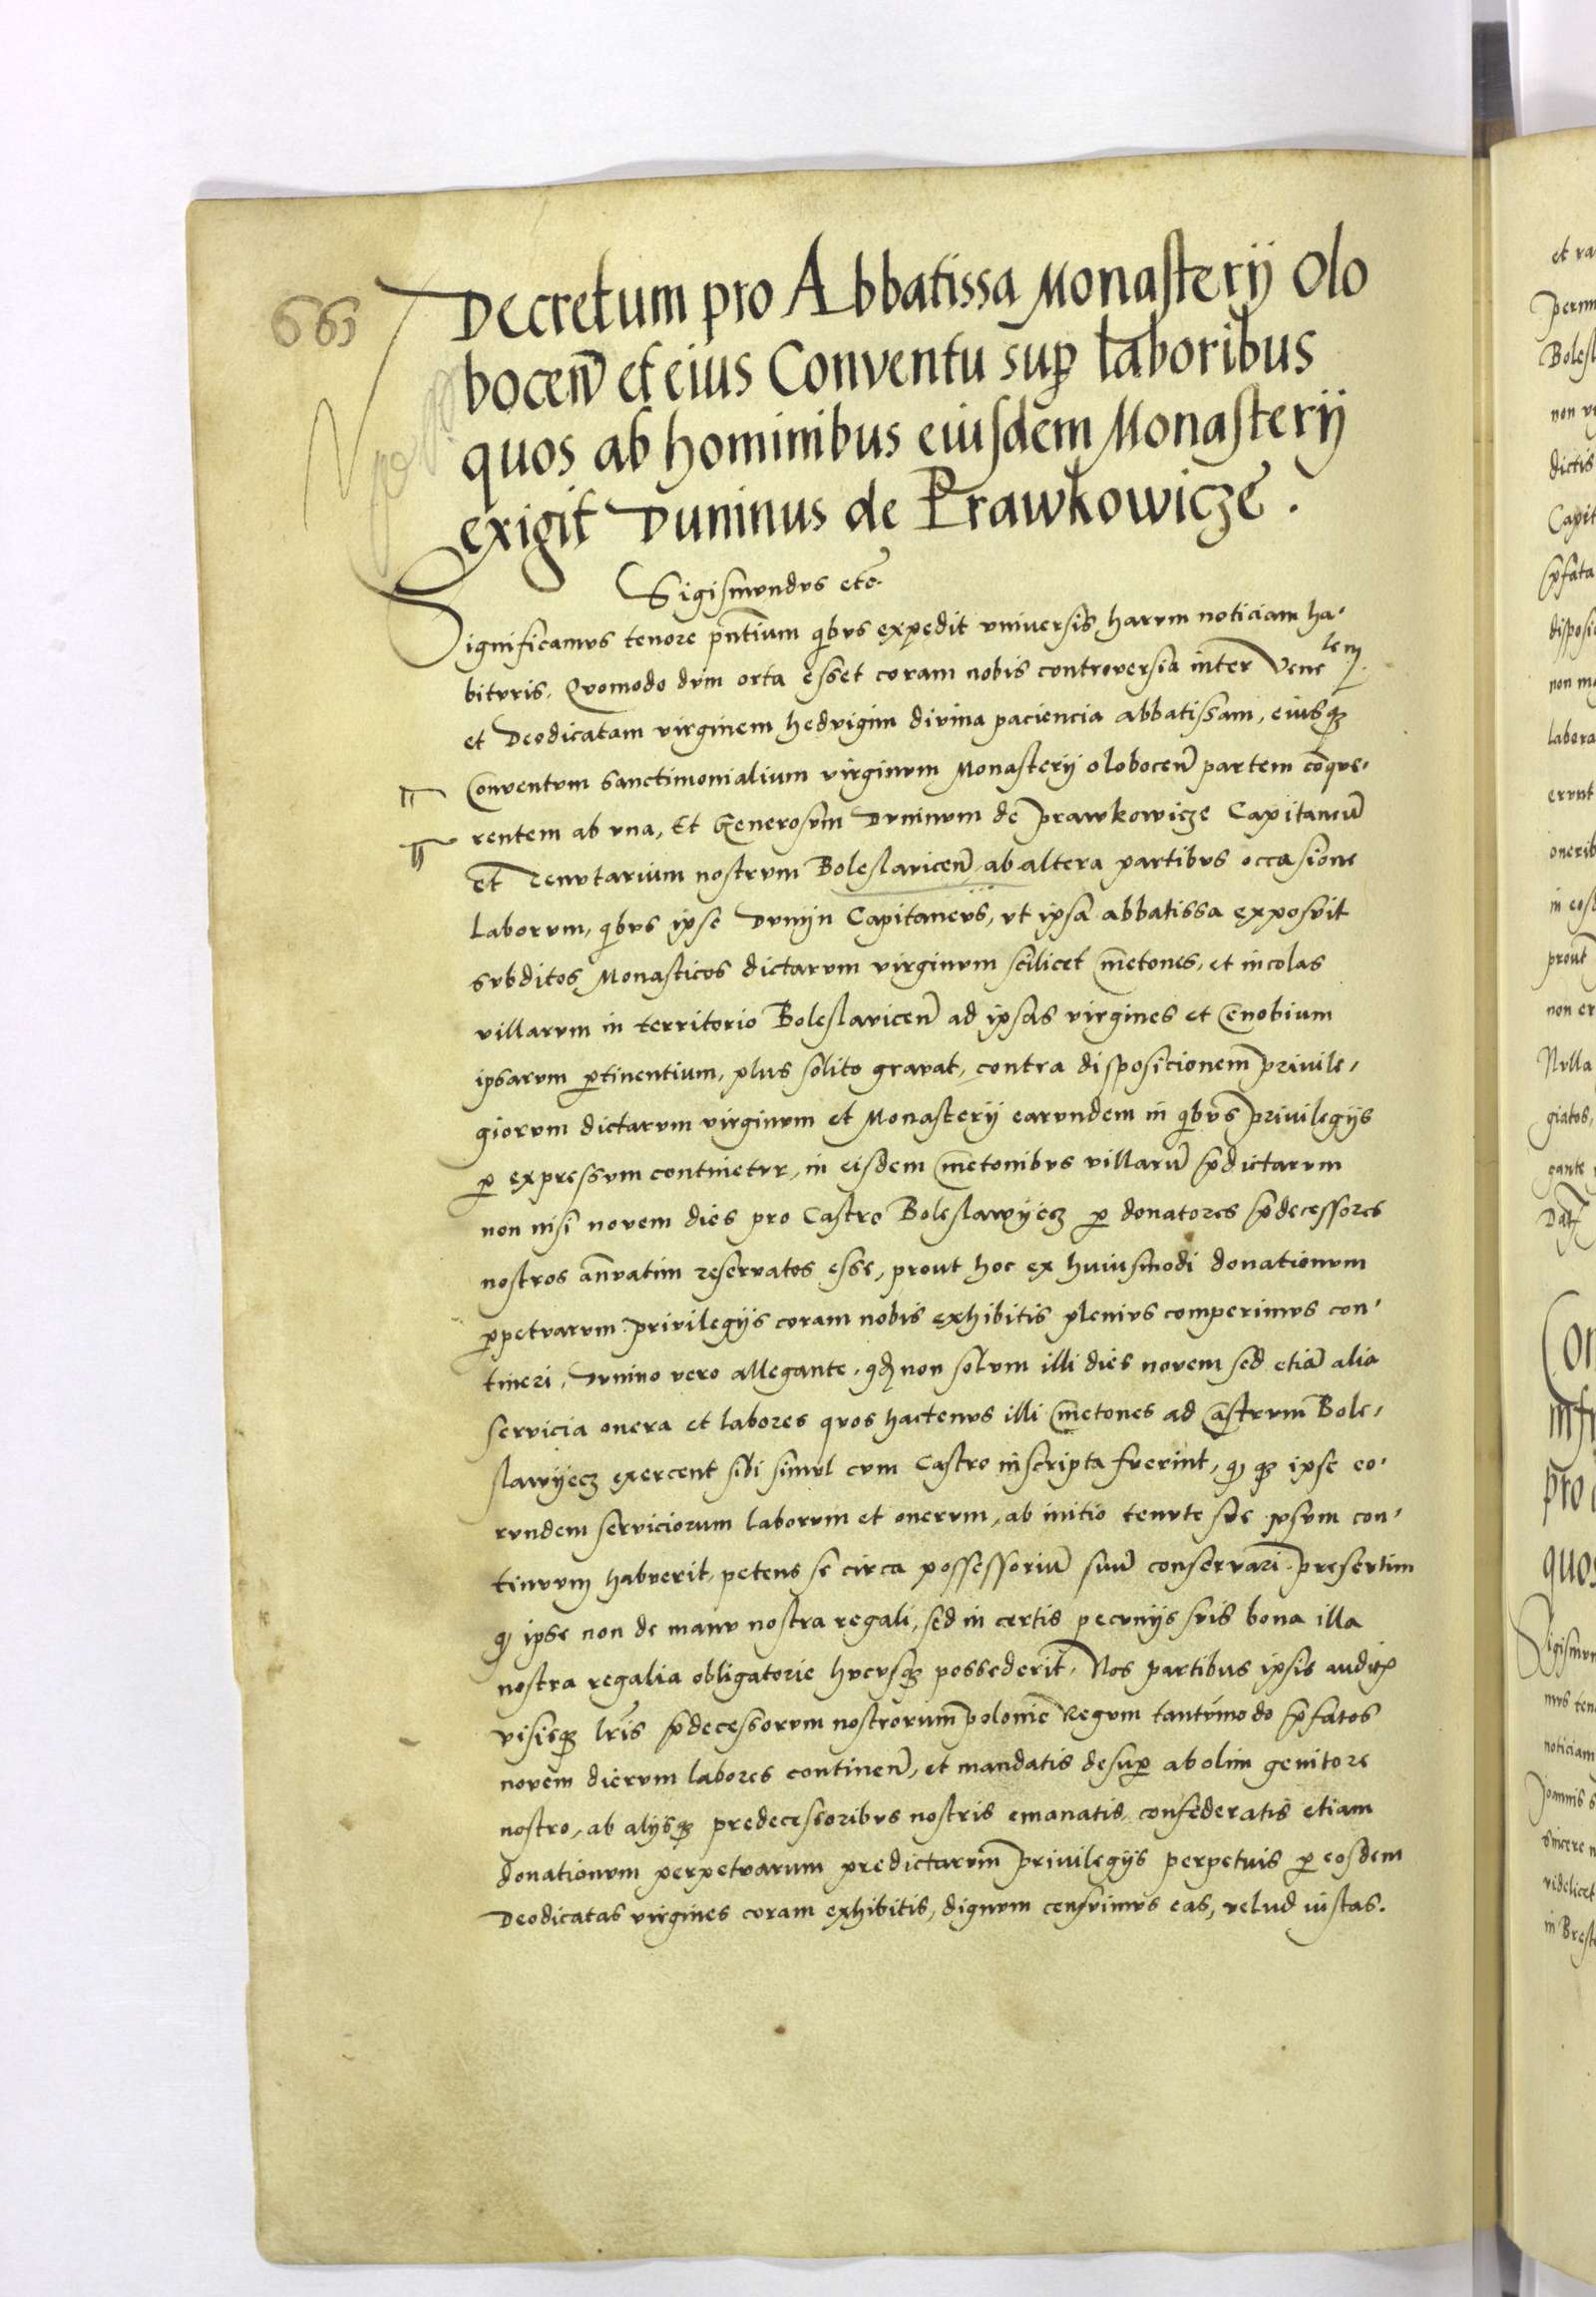 663
Decretum pro Abbatissa Monasterij Olo
bocen̄ et eius Conventu sup̱ laboribus
quos ab hominibus eiusdem Monasterij
exigit Duninus de Prawkowicze.
Sigismundus etc̄.
Significamus tenore pn̄tium qibus expedit vniversis harum noticiam ha-
bituris. Quomodo dum orta esset coram nobis controversia inter Vene
lem
et Deodicatam virginem hedvigim divina paciencia abbatissam, eiusqꝫ
Conventum sanctimonialium virginum Monasterij olobocen̄ partem cōque-
rentem ab vna, Et Generosum Duninum de prawkowicze Capitaneū
et Tenutarium nostrum Boleslavicen̄ ab altera partibus occasione
laborum, qibus ipse Dunijn Capitaneus, ut ipsa abbatissa exposuit
subditos Monasticos dictarum virginum scilicet Cmetones, et incolas
villarum in territorio Boleslavicen̄ ad ipsas virgines et Cenobium
ipsarum ꝑtinentium, plus solito gravat, contra disposicionem privile-
giorum dictarum virginum et Monasterij earundem in qibus privilegijs
ꝑ expressum continetur, in eisdem Cmetonibus villarū p̄dictarum
non nisi novem dies pro Castro Boleslawyecz ꝑ donatores p̄decessores
nostros an̄uatim reservatos esse, prout hoc ex huiusmodi donationum
ꝑpetuarum privilegijs coram nobis exhibitis plenius comperimus con-
tineri, Dunino vero allegante, qđ non solum illi dies novem sed etiā alia
servicia onera et labores quos hactenus illi Cmetones ad Castrum Bole-
slawyecz exercent sibi simul cum Castro inscripta fuerint, qꝫ ipse eo-
rundem serviciorum laborum et onerum, ab initio tenute sue vsum con-
tinuum habuerit, petens se circa possessoriū suū conservari presertim
q ipse non de manu nostra regali, sed in certis pecunijs suis bona illa
nostra regalia obligatorie hucusqꝫ possederit. Nos partibus ipsis auditis
visisqꝫ lr̄is p̄decessorum nostrorum polonie Regum tantummodo p̄fatos
novem dierum labores continen̄, et mandatis desup̱ ab olim genitore
nostro, ab alijsqꝫ predecessoribus nostris emanatis, consideratis etiam
donationum perpetuarum predictarum privilegijs perpetuis ꝑ eosdem
Deodicatas virgines coram exhibitis, dignum censuimus eas, velud iustas.